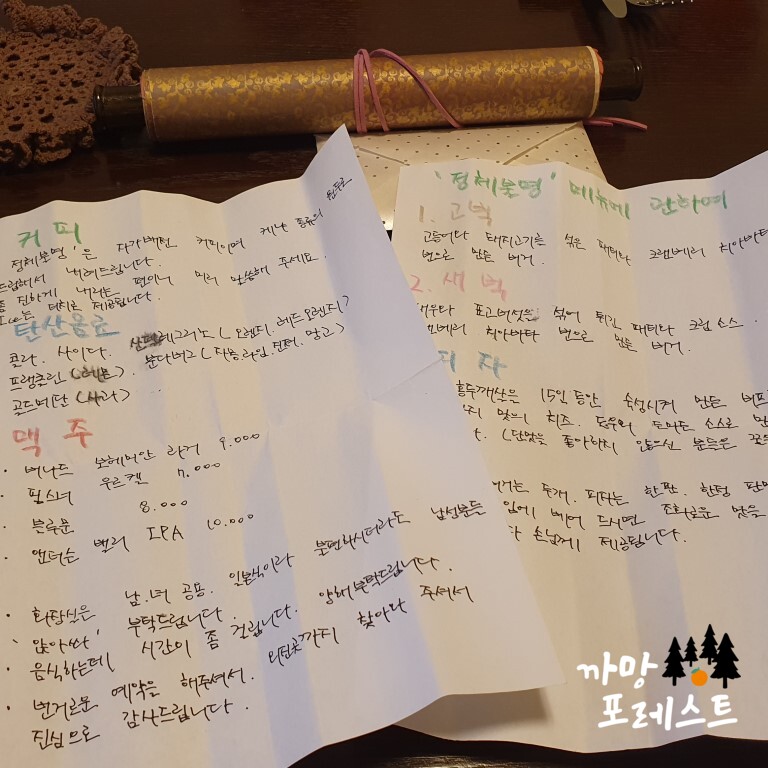 커피
'정체불명'은 자가배전 커피이며 케냐 종류의 원두로
드립해서 내려드립니다.
좀 진하게 내리는 편이니 미리 말씀해 주세요.
제공됩니다.
탄산음료
콜라. 사이다. 산펠레그리노 (오렌지. 레드오렌지)
프랭클린 (레몬). 분다버그 (자몽. 라임. 진저. 망고)
골드메달 (사과)
맥주
· 버나드 보헤미안 라거 9.000
· 필스너 우르켈 7.000
· 블루문 8.000
· 앤더슨 밸리 IPA 10.000
· 화장실은 남.녀 공용. 일본식이라 불편하시더라도 남성분들
'앉아쏴' 부탁드립니다.
· 음식하는데 시간이 좀 걸립니다. 양해부탁드립니다.
· 번거로운 예약을 해주셔서. 외진곳까지 찾아와 주셔서
진심으로 감사드립니다.
'정체불명' 메뉴에 관하여
1. 고벅
고등어와 돼지고기를 섞은 패티와 크랜베리 치아바타
번으로 만든 버거.
2. 새벅
새우와 표고버섯을 섞어 튀긴 패티와 크림소스.
치아바타 번으로 만든 버거.
피자
홍두깨살은 15일동안 숙성시켜 만든
맛의 치즈. 도우와 토마토 소스로
(단맛을 좋아하지 않으신 분들은
버거는 두개. 피자는 한판. 한정 판매
입에 베어 드시면 조화로운 맛을
손님께 제공됩니다.
까망
포레스트